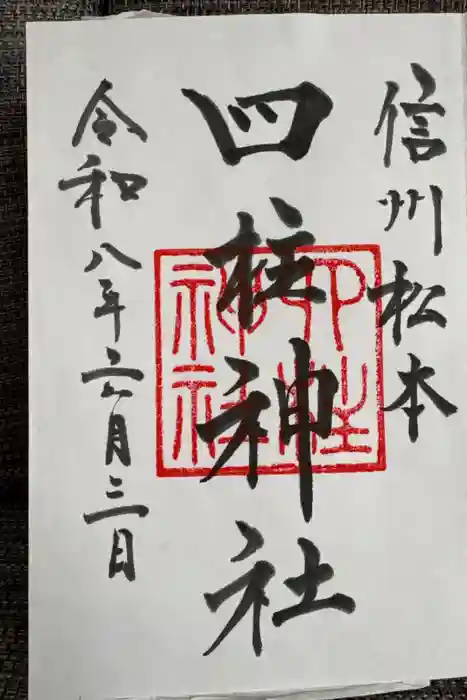 信州松本
四柱神社
令和八年六月三日
四柱
神社